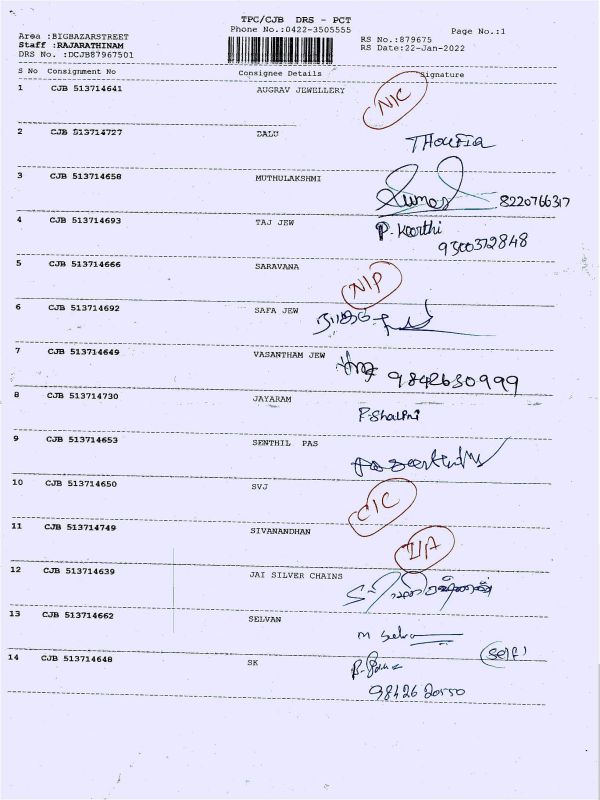 TPC/CJB DRS - PCT
Phone No.:0422-3505555
Page No.:1
Area :BIGBAZARSTREET
Staff :RAJARATHINAM
DRS No. :DCJB87967501
RS No.:879675
RS Date:22-Jan-2022
S No Consignment No Consignee Details Signature
1 CJB 513714641 AUGRAV JEWELLERY NIC
2 CJB 513714727 DALU
3 CJB 513714658 MUTHULAKSHMI 8220766317
4 CJB 513714693 TAJ JEW P. Keerthi
9300372848
5 CJB 513714666 SARAVANA NIP
6 CJB 513714692 SAFA JEW
7 CJB 513714649 VASANTHAM JEW 9842630999
8 CJB 513714730 JAYARAM P. Shalini
9 CJB 513714653 SENTHIL PAS
10 CJB 513714650 SVJ CIC
11 CJB 513714749 SIVANANDHAN
12 CJB 513714639 JAI SILVER CHAINS
13 CJB 513714662 SELVAN M Selva
14 CJB 513714648 SK (Self)
98426 20550